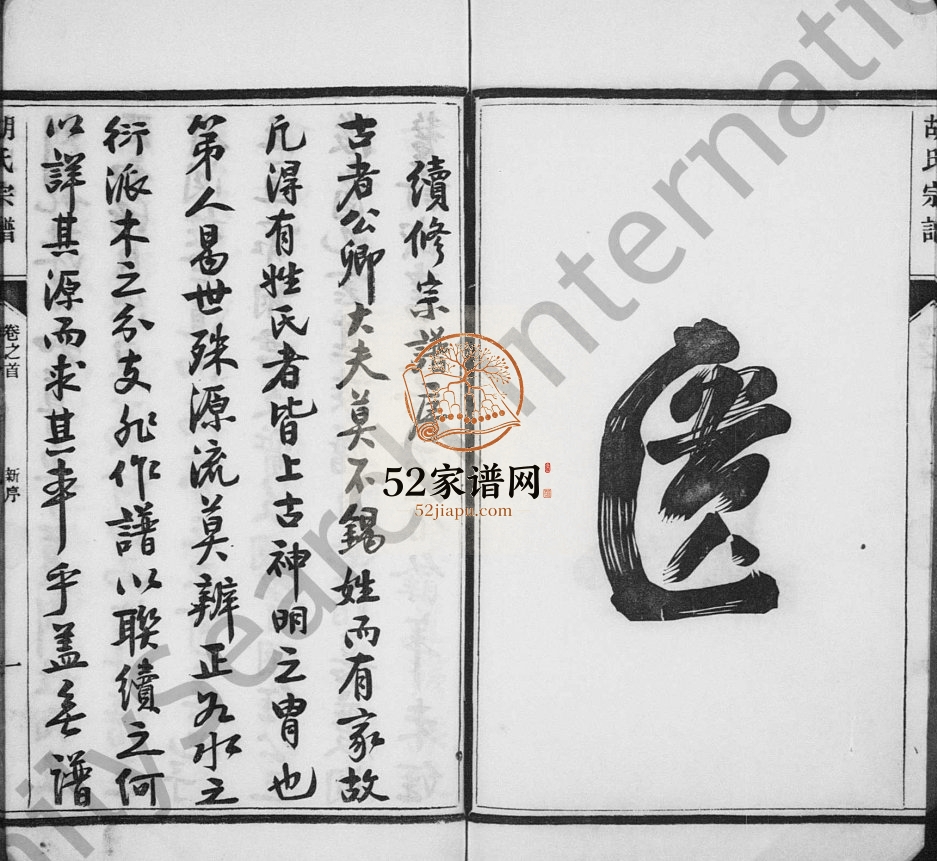 胡氏宗譜
續修宗譜序
古者公卿大夫莫不錫姓而有家故
凡淂有姓氏者皆上古神明之胄也
第人易世殊源流莫辨正如水之
衍派木之分支非作譜以聯續之何
以詳其源而求其事乎蓋無譜
胡氏宗譜
卷之首
新序
一
52家谱网
52jiapu.com
FamilySearch International